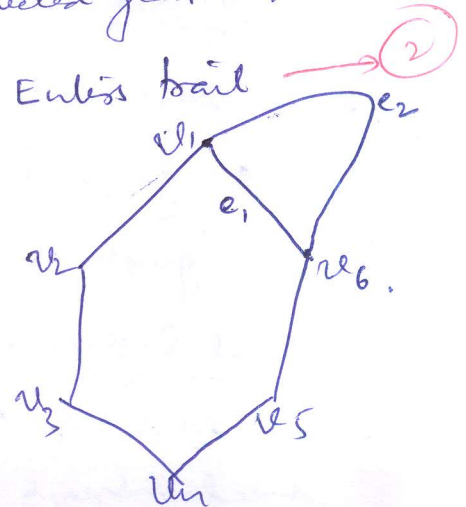 Euler's trail
2
v1
e2
e1
v2
v6.
v3
v5
v4